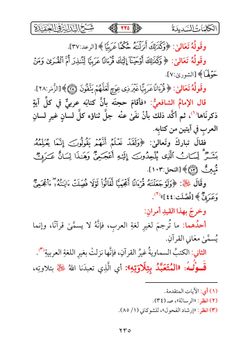 الكلمات السديدة
٢٣٥
شرح البداية في العقيدة
وقوله تعالى: ﴿وَكَذَٰلِكَ أَنزَلْنَاهُ حُكْمًا عَرَبِيًّا﴾ [الرعد: ٣٧].
وقوله تعالى: ﴿وَكَذَٰلِكَ أَوْحَيْنَا إِلَيْكَ قُرْآنًا عَرَبِيًّا لِّتُنذِرَ أُمَّ الْقُرَىٰ وَمَنْ
حَوْلَهَا﴾ [الشورى: ٧].
وقوله تعالى: ﴿قُرْآنًا عَرَبِيًّا غَيْرَ ذِي عِوَجٍ لَّعَلَّهُمْ يَتَّقُونَ﴾ [الزمر: ٢٨].
قال الإمام الشافعي: «فأقام حجته بأن كتابه عربي في كل آية
ذكرناها(١)، ثم أكد ذلك بأن نفى عنه جل ثناؤه كل لسان غير لسان
العرب في آيتين من كتابه.
فقال تبارك وتعالى: ﴿وَلَقَدْ نَعْلَمُ أَنَّهُمْ يَقُولُونَ إِنَّمَا يُعَلِّمُهُ
بَشَرٌ لِّسَانُ الَّذِي يُلْحِدُونَ إِلَيْهِ أَعْجَمِيٌّ وَهَٰذَا لِسَانٌ عَرَبِيٌّ
مُّبِينٌ﴾ [النحل: ١٠٣].
وقال: ﴿وَلَوْ جَعَلْنَاهُ قُرْآنًا أَعْجَمِيًّا لَّقَالُوا لَوْلَا فُصِّلَتْ آيَاتُهُ أَأَعْجَمِيٌّ
وَعَرَبِيٌّ﴾ [فصلت: ٤٤]»(٢).
وخرج بهذا القيد أمران:
أحدهما: ما ترجم لغير لغة العرب، فإنه لا يسمى قرآنا، وإنما
يسمى معاني القرآن.
الثاني: الكتب السماوية غير القرآن، فإنها نزلت بغير اللغة العربية(٣).
قوله: «المتعبد بتلاوته»: أي الذي تعبدنا الله بتلاوته،
(١) أي: الآيات المتقدمة.
(٢) انظر: «الرسالة»، صـ (٣٤).
(٣) انظر: «إرشاد الفحول»، للشوكاني (١/ ٨٥).
٢٣٥